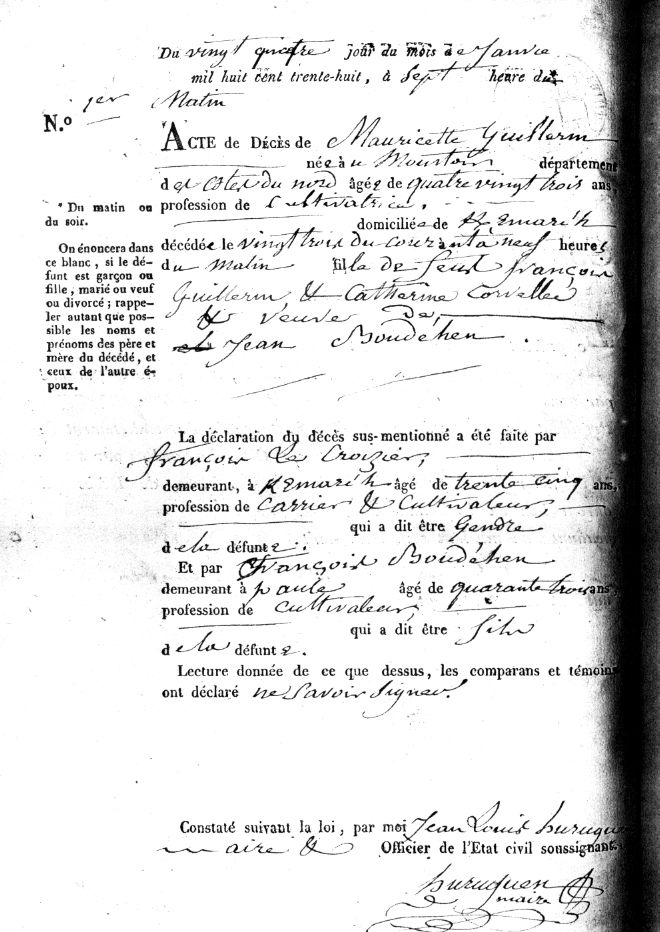 Du vingt quatre jour du mois de Janvie
mil huit cent trente-huit, à Sept heure du*
N.º 1er Matin
ACTE de Décès de Mauricette Guillerm
née à u Moustoir département
des Cotes du nord âgée de quatre vingt trois ans,
profession de Cultivatrice,
domiciliée de
décédée le vingt trois du courant à neuf heures
du Matin fille de feus françois
Guillerm & Catherine
& Veuve De,
Jean Boudéhen.
* Du matin ou
du soir.
On énoncera dans
ce blanc, si le dé-
funt est garçon ou
fille, marié ou veuf
ou divorcé; rappe-
ler autant que pos-
sible les noms et
prénoms des père et
mère du décédé, et
ceux de l'autre é-
poux.
La déclaration du décès sus-mentionné a été faite par
françois Le Croizier,
demeurant, à âgé de trente cinq ans,
profession de Carrier & Cultivateur,
qui a dit être Gendre
de la défunte.
Et par François Boudéhen
demeurant à paule âgé de quarante trois ans,
profession de cultivateur,
qui a dit être fils
de la défunte.
Lecture donnée de ce que dessus, les comparans et témoins
ont déclaré ne Savoir Signer.
Constaté suivant la loi, par moi Jean Louis huruguen
maire & Officier de l'Etat civil soussignant.
huruguen
maire